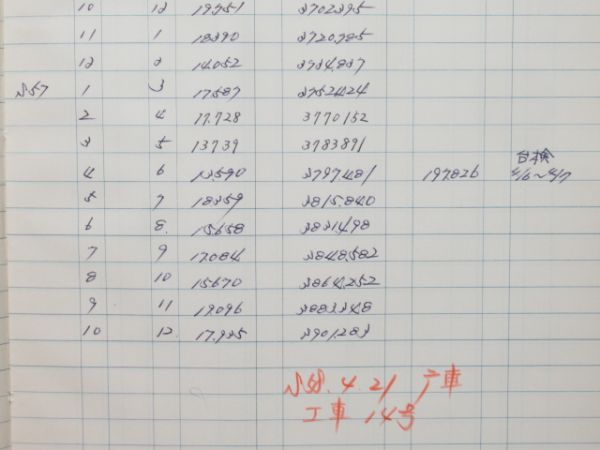 10 12 3702395
11 1 18390 3720,785
12 2 14052 3734,837
S57 1 3 17587 3752424
2 4 17.728 3770152
3 5 13739 3783891
台検
4 6 13,590 3797,481 197826
5 7 18359 3815,840
6 8. 15658 3831,498
7 9 17,084 3848,582
8 10 15670 3864,252
9 11 19096 3883348
10 12. 17,935 3901,283
S58.4.21 广車
工車 14号